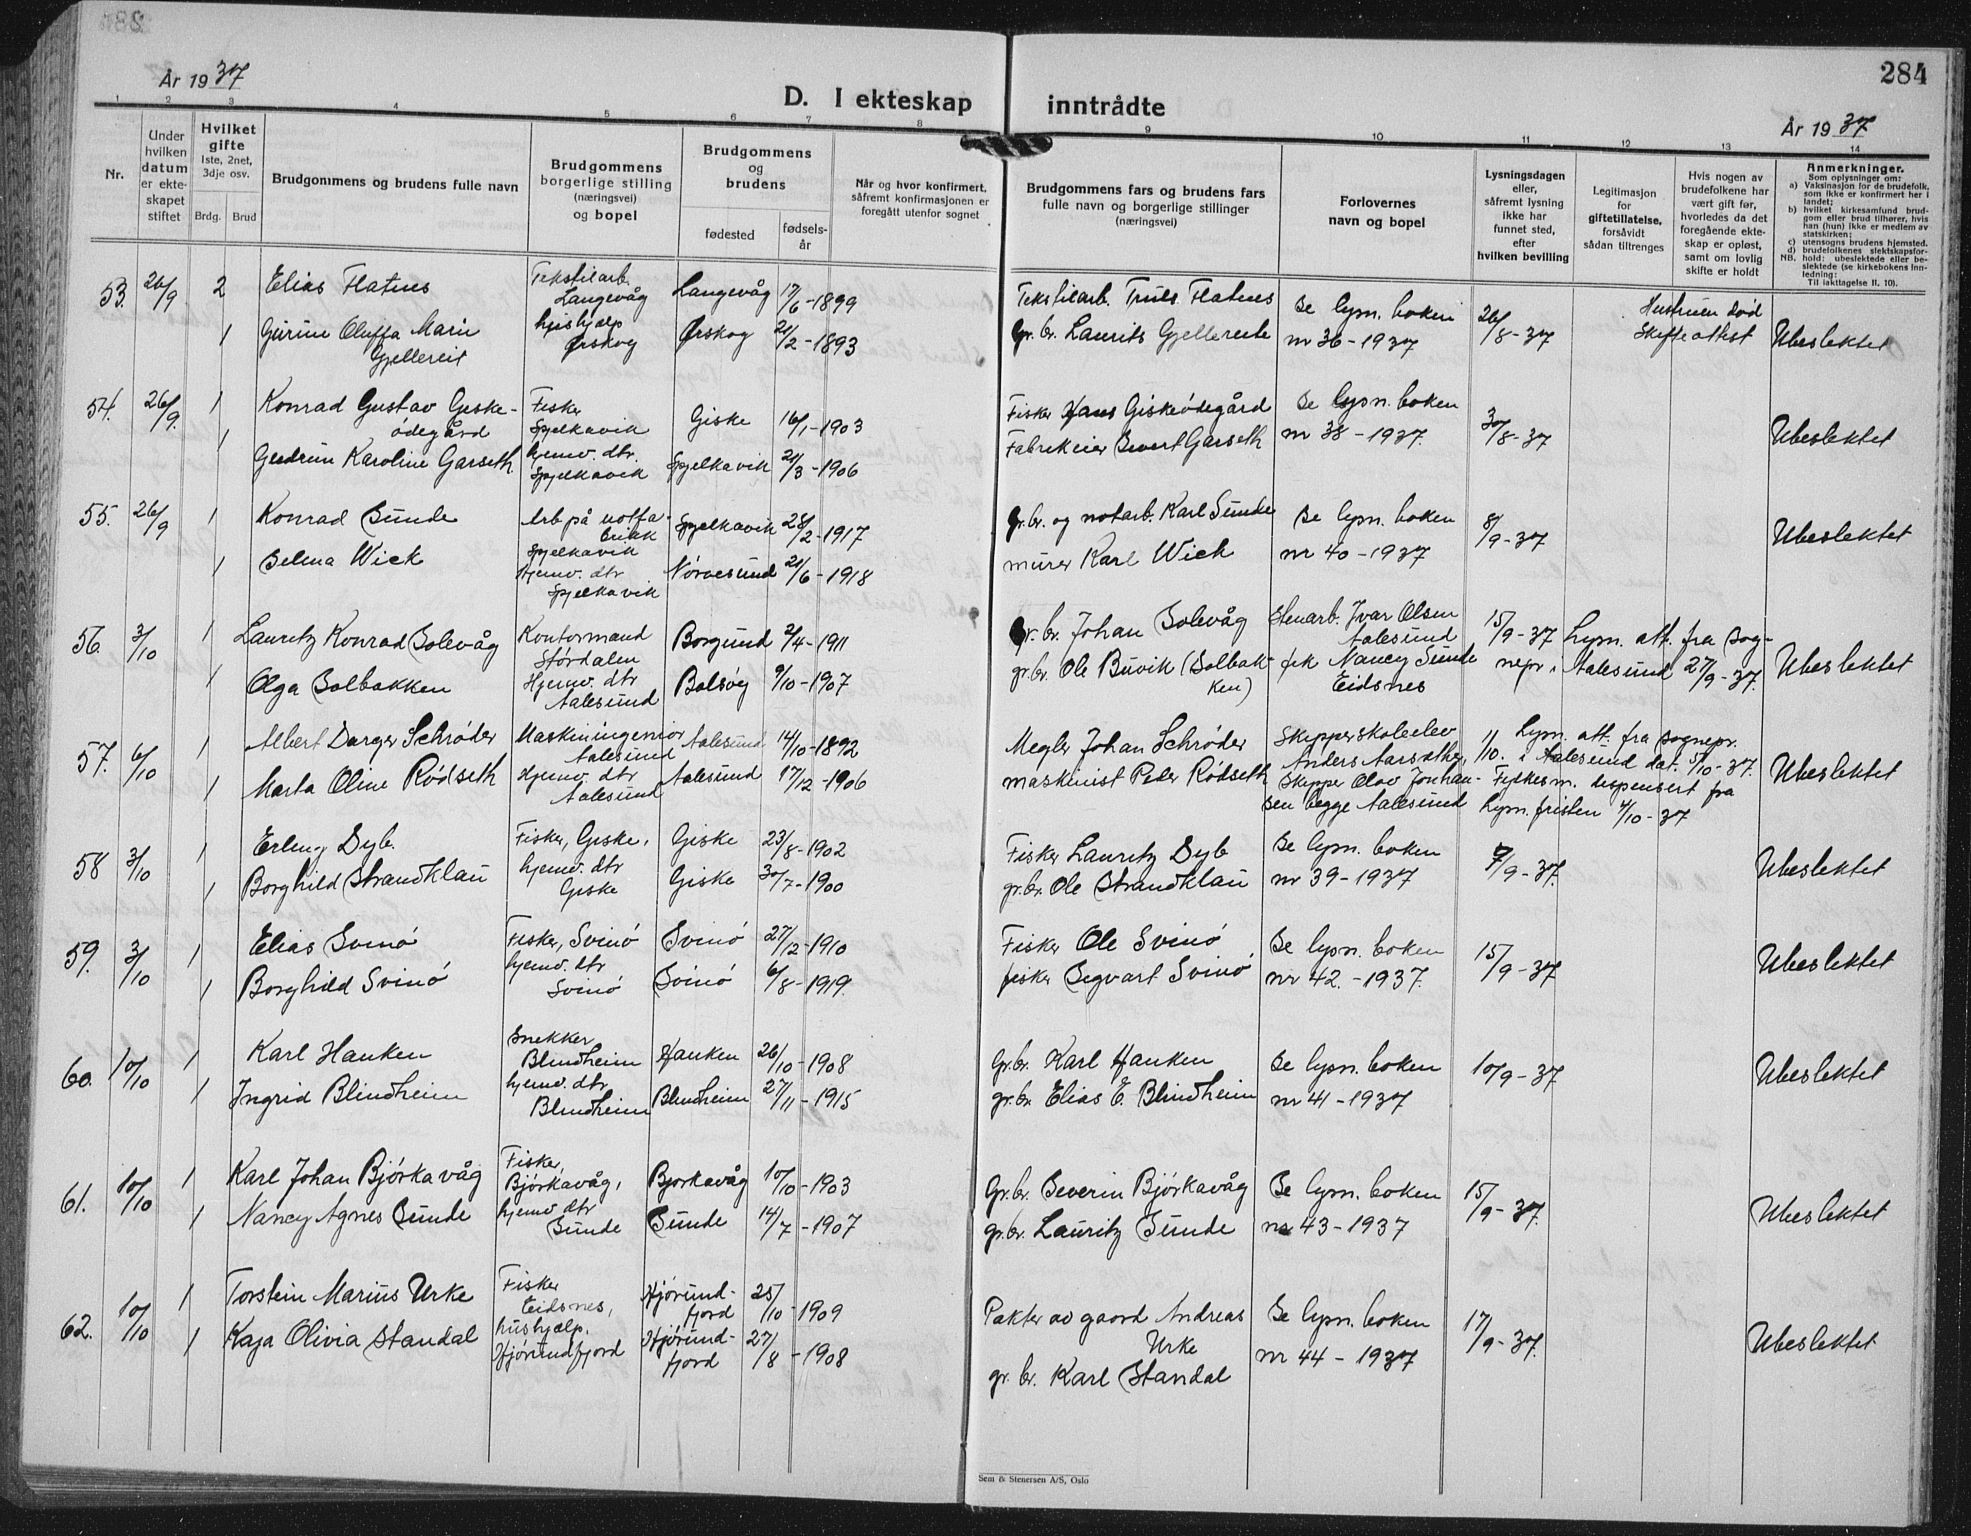 284
År 1937
D. I ekteskap inntrådte
År 1937
1 2 3 4 5 6 7 8 9 10 11 12 13 14
Nr.
Under hvilken datum er ekteskapet stiftet
Hvilket gifte 1ste, 2net, 3dje osv.
Brdg. Brud
Brudgommens og brudens fulle navn
Brudgommens borgerlige stilling (næringsvei) og bopel
Brudgommens og brudens
fødested
fødsels-år
Når og hvor konfirmert, såfremt konfirmasjonen er foregått utenfor sognet
Brudgommens fars og brudens fars fulle navn og borgerlige stillinger (næringsvei)
Forlovernes navn og bopel
Lysningsdagen eller, såfremt lysning ikke har funnet sted, efter hvilken bevilling
Legitimasjon for giftetillatelse, forsåvidt sådan tiltrenges
Hvis nogen av brudefolkene har vært gift før, hvorledes da det foregående ekteskap er opløst, samt om lovlig skifte er holdt
Anmerkninger.
Som oplysninger om:
a) Vaksinasjon for de brudefolk, som ikke er konfirmert her i landet;
b) hvilket kirkesamfund brudgom eller brud tilhører, hvis han (hun) ikke er medlem av statskirken;
c) utensogns brudens hjemsted.
d) brudefolkenes slektskapsforhold: ubeslektede eller beslektede (se kirkebokens innledning:
NB.
Til iakttagelse II, 10).
53. 26/9 2 Elias Flatnes Tekstilarb. Langevåg Langevåg 17/6-1899 Tekstilarb. Truls Flatnes Se lysn. boken nr 36-1937 26/8-37 Hustruen død Skifteattest Ubeslektet
1 Gurine Oluffa Marie Gjellereit hushjælp Ørskog Ørskog 21/2-1893 Gr. br. Laurits Gjellereite
54. 26/9. 1 Konrad Gustav Giske-ødegård Fisker Spjelkavik Giske 16/1-1903 Fisker Hans Giskeødegård Se lysn. boken nr 38-1937. 30/8-37 Ubeslektet
1 Gudrun Karoline Garseth hjemv. dtr. Spjelkavik Spjelkavik 21/3-1906 Fabrikeier Sivert Garseth
55. 26/9 1 Konrad Sunde Arb på notfabrikk Spjelkavik Spjelkavik 28/2-1917 gr. br. og notarb. Karl Sunde Se lysn. boken nr 40-1937 8/9-37 Ubeslektet
1 Selma Wick Hjemv. dtr Spjelkavik Nørvesund 21/6-1918 murer Karl Wick
56. 3/10 1 Lauritz Konrad Solevåg Kontormand Stordalen Borgund 2/4-1911 gr. br. Johan Solevåg Stenarb. Ivar Olsen Aalesund 15/9-37 Lysn. att. fra sog-nepr. i Aalesund 27/9-37. Ubeslektet
1 Olga Solbakken Hjemv. dtr Aalesund Bolsøy 9/10-1907 gr. br. Ole Buvik (Solbak-ken) frk Nancy Sunde Eidsnes
57. 6/10 1 Albert Darger Schrøder Maskiningeniør Aalesund Aalesund 14/10-1892 Megler Johan Schrøder Skipperskoleelev Anders Aarsæther, 1/10. Lysn. att. fra sognepr. i Aalesund dat. 5/10-37. Ubeslektet
1 Marta Oline Rødseth Hjemv. dtr Aalesund Aalesund 17/12-1906 maskinist Peder Rødseth Skipper Olav Johan-sen begge Aalesund Fylkesm. dispensert fra lysn. fristen 4/10-37
58 3/10 1 Erling Dyb. Fisker, Giske, Giske 23/8-1902 Fisker Lauritz Dyb Se lysn. boken nr 39-1937 7/9-37. Ubeslektet
1 Borghild Strandklau hjemv. dtr Giske Giske 30/7-1900 gr. br. Ole Strandklau
59. 3/10 1 Elias Svinø Fisker, Svinø Svinø 27/12-1910 Fisker Ole Svinø Se lysn. boken nr 42.-1937. 15/9-37 Ubeslektet
1 Borghild Svinø hjemv. dtr Svinø Svinø 6/8-1919. fisker Segvart Svinø
60. 10/10 1 Karl Hauken Snekker Blindheim Hauken 26/10-1908 Gr. br. Karl Hauken Se lysn. boken nr 41-1937 10/9-37 Ubeslektet
1 Ingrid Blindheim hjemv. dtr Blindheim Blindheim 27/11-1915 gr. br. Elias E. Blindheim
61. 10/10 1 Karl Johan Bjørkavåg Fisker, Bjørkavåg, Bjørkavåg 10/10-1903 Gr. br. Severin Bjørkavåg Se lysn. boken nr 43-1937 15/9-37. Ubeslektet
1 Nancy Agnes Sunde hjemv. dtr Sunde Sunde 14/7-1907 gr. br. Lauritz Sunde
62. 10/10 1 Torstein Marius Urke Fisker Eidsnes, Hjørund-fjord 25/10-1909 Pakter av gaard Andreas Urke Se lysn. boken nr 44-1937 17/9-37. Ubeslektet
1 Kaja Olivia Standal hushjælp. Hjørundfjord Hjørund-fjord 27/8-1908 gr. br. Karl Standal
Sem & Stenersen A/S, Oslo